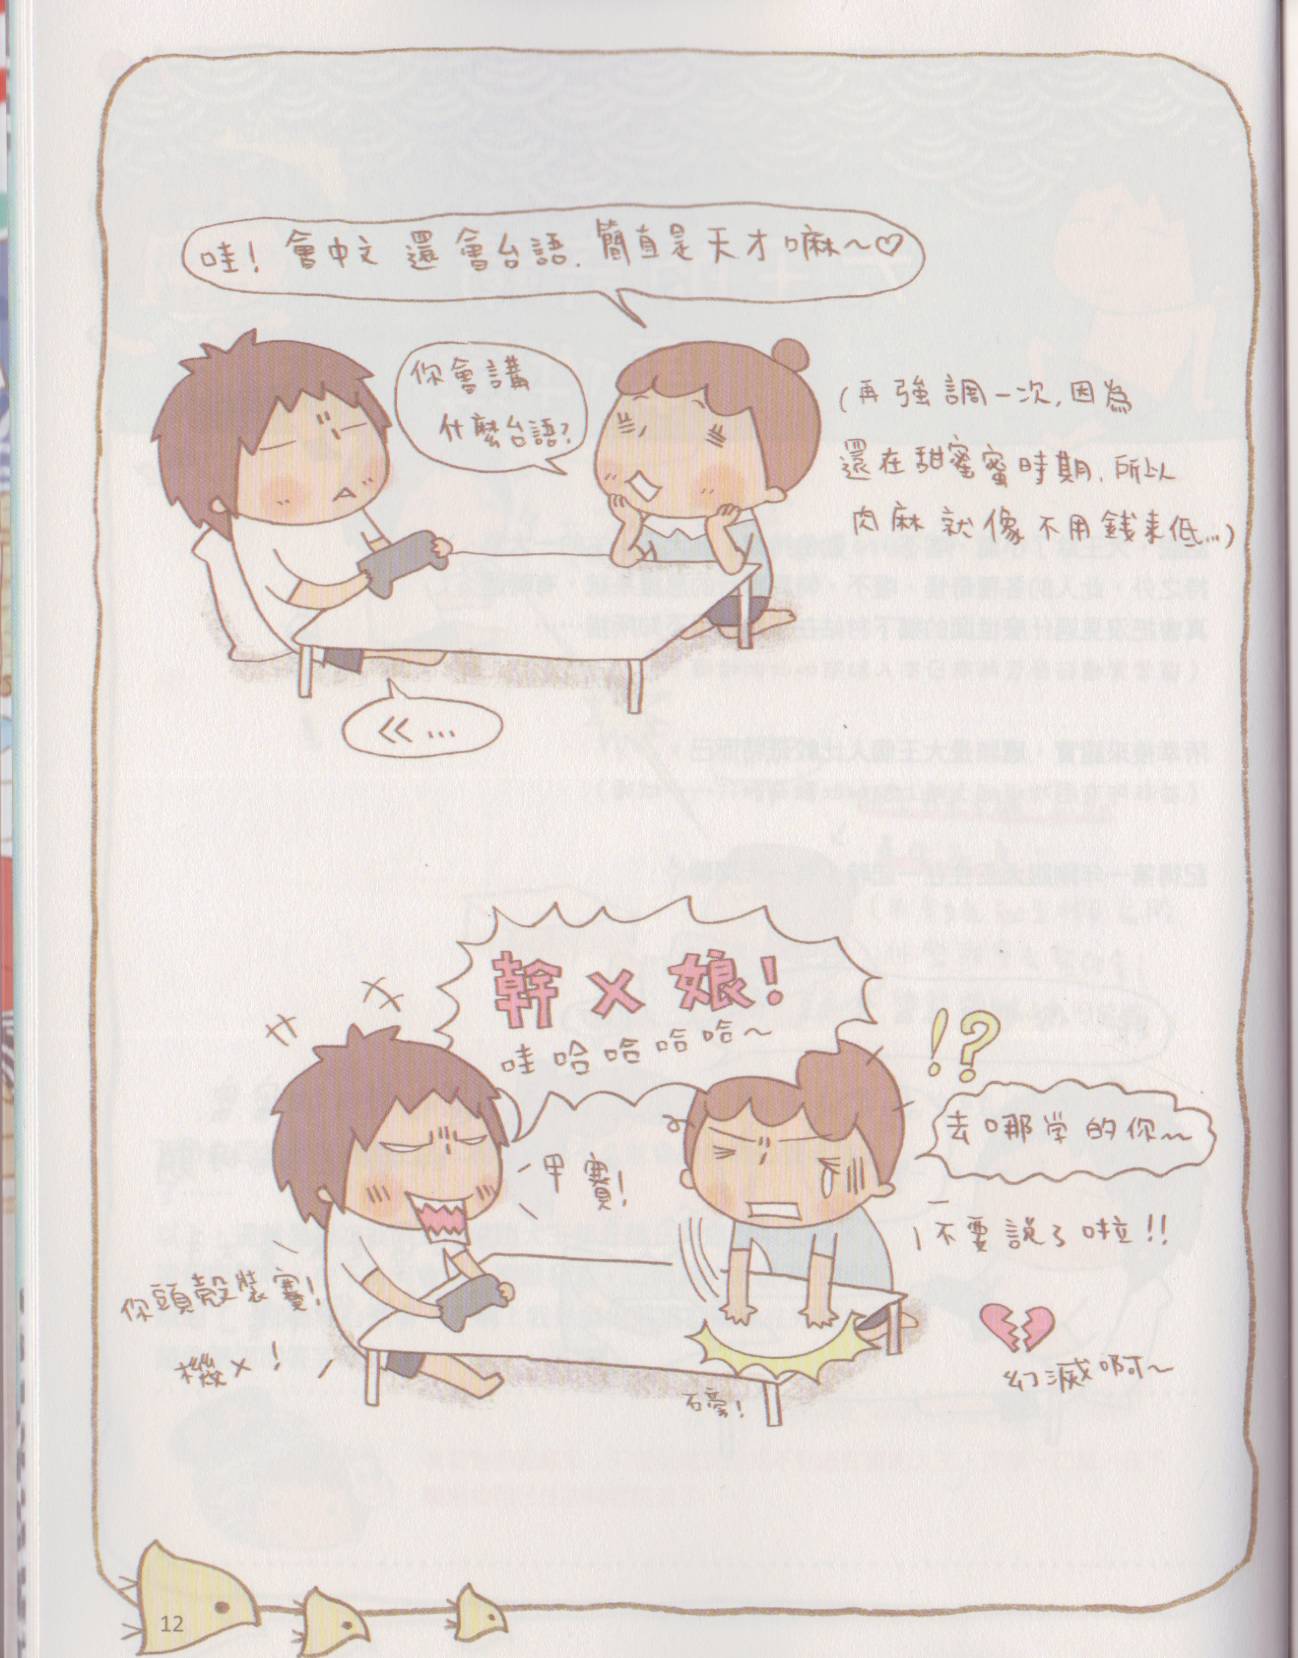 哇! 會中文 還會台語. 簡直是天才嘛~♡
你會講
什麼台語?
(再強調一次,因為
還在甜蜜蜜時期,所以
肉麻就像不用錢來低...)
ㄍ...
幹X娘!
哇哈哈哈哈~
甲賽!
!?
去哪学的你~
不要說了啦!!
你頭殼裝賽!
機X!
幻滅啊~
12